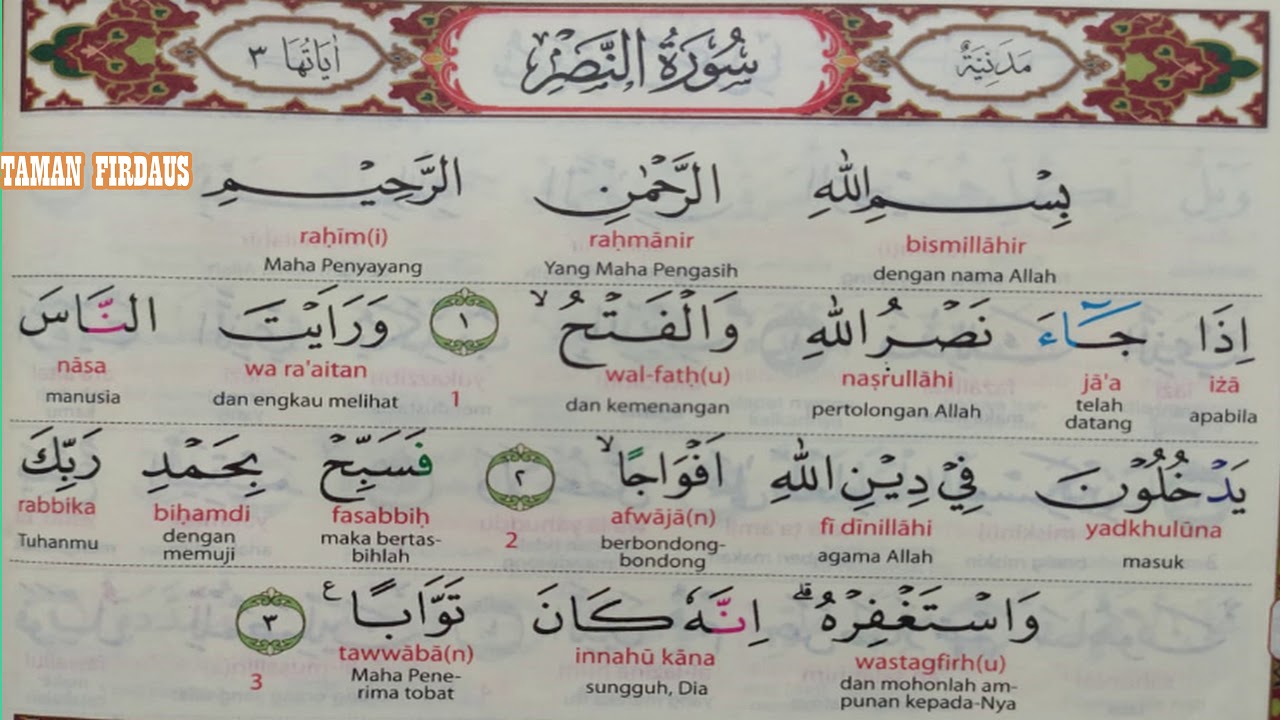 اٰيَاتُهَا ٣ سُوْرَةُ النَّصْرِ مَدَنِيَّةٌ
TAMAN FIRDAUS
بِسْمِ اللّٰهِ الرَّحْمٰنِ الرَّحِيْمِ
bismillāhir raḥmānir raḥīm(i)
dengan nama Allah Yang Maha Pengasih Maha Penyayang
اِذَا جَاۤءَ نَصْرُ اللّٰهِ وَالْفَتْحُۙ ١ وَرَاَيْتَ النَّاسَ
iżā jā'a naṣrullāhi wal-fatḥ(u) 1 wa ra'aitan nāsa
apabila telah datang pertolongan Allah dan kemenangan dan engkau melihat manusia
يَدْخُلُوْنَ فِيْ دِيْنِ اللّٰهِ اَفْوَاجًاۙ ٢ فَسَبِّحْ بِحَمْدِ رَبِّكَ
yadkhulūna fī dīnillāhi afwājā(n) 2 fasabbiḥ biḥamdi rabbika
masuk agama Allah berbondong-bondong maka bertas-bihlah dengan memuji Tuhanmu
وَاسْتَغْفِرْهُۗ اِنَّهٗ كَانَ تَوَّابًا ࣖ ٣
wastagfirh(u) innahū kāna tawwābā(n) 3
dan mohonlah am-punan kepada-Nya sungguh, Dia Maha Pene-rima tobat